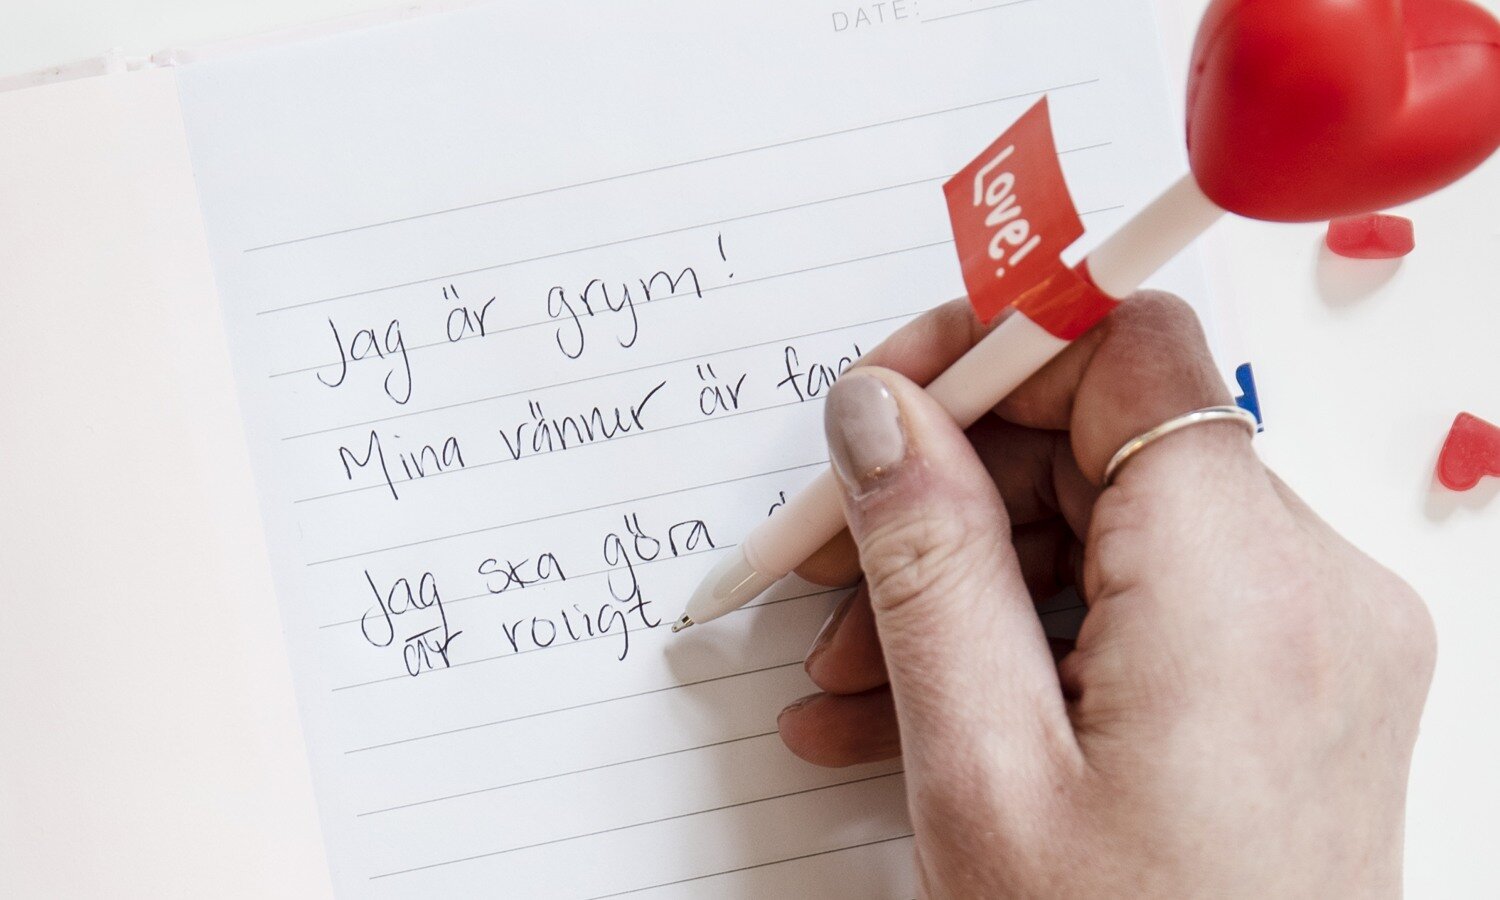 DATE:
Love!
Jag är grym!
Mina vänner är
Jag ska göra
är roligt